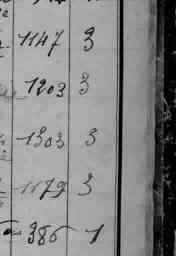 1147 3
1203 3
1303 3
1179 3
386 1